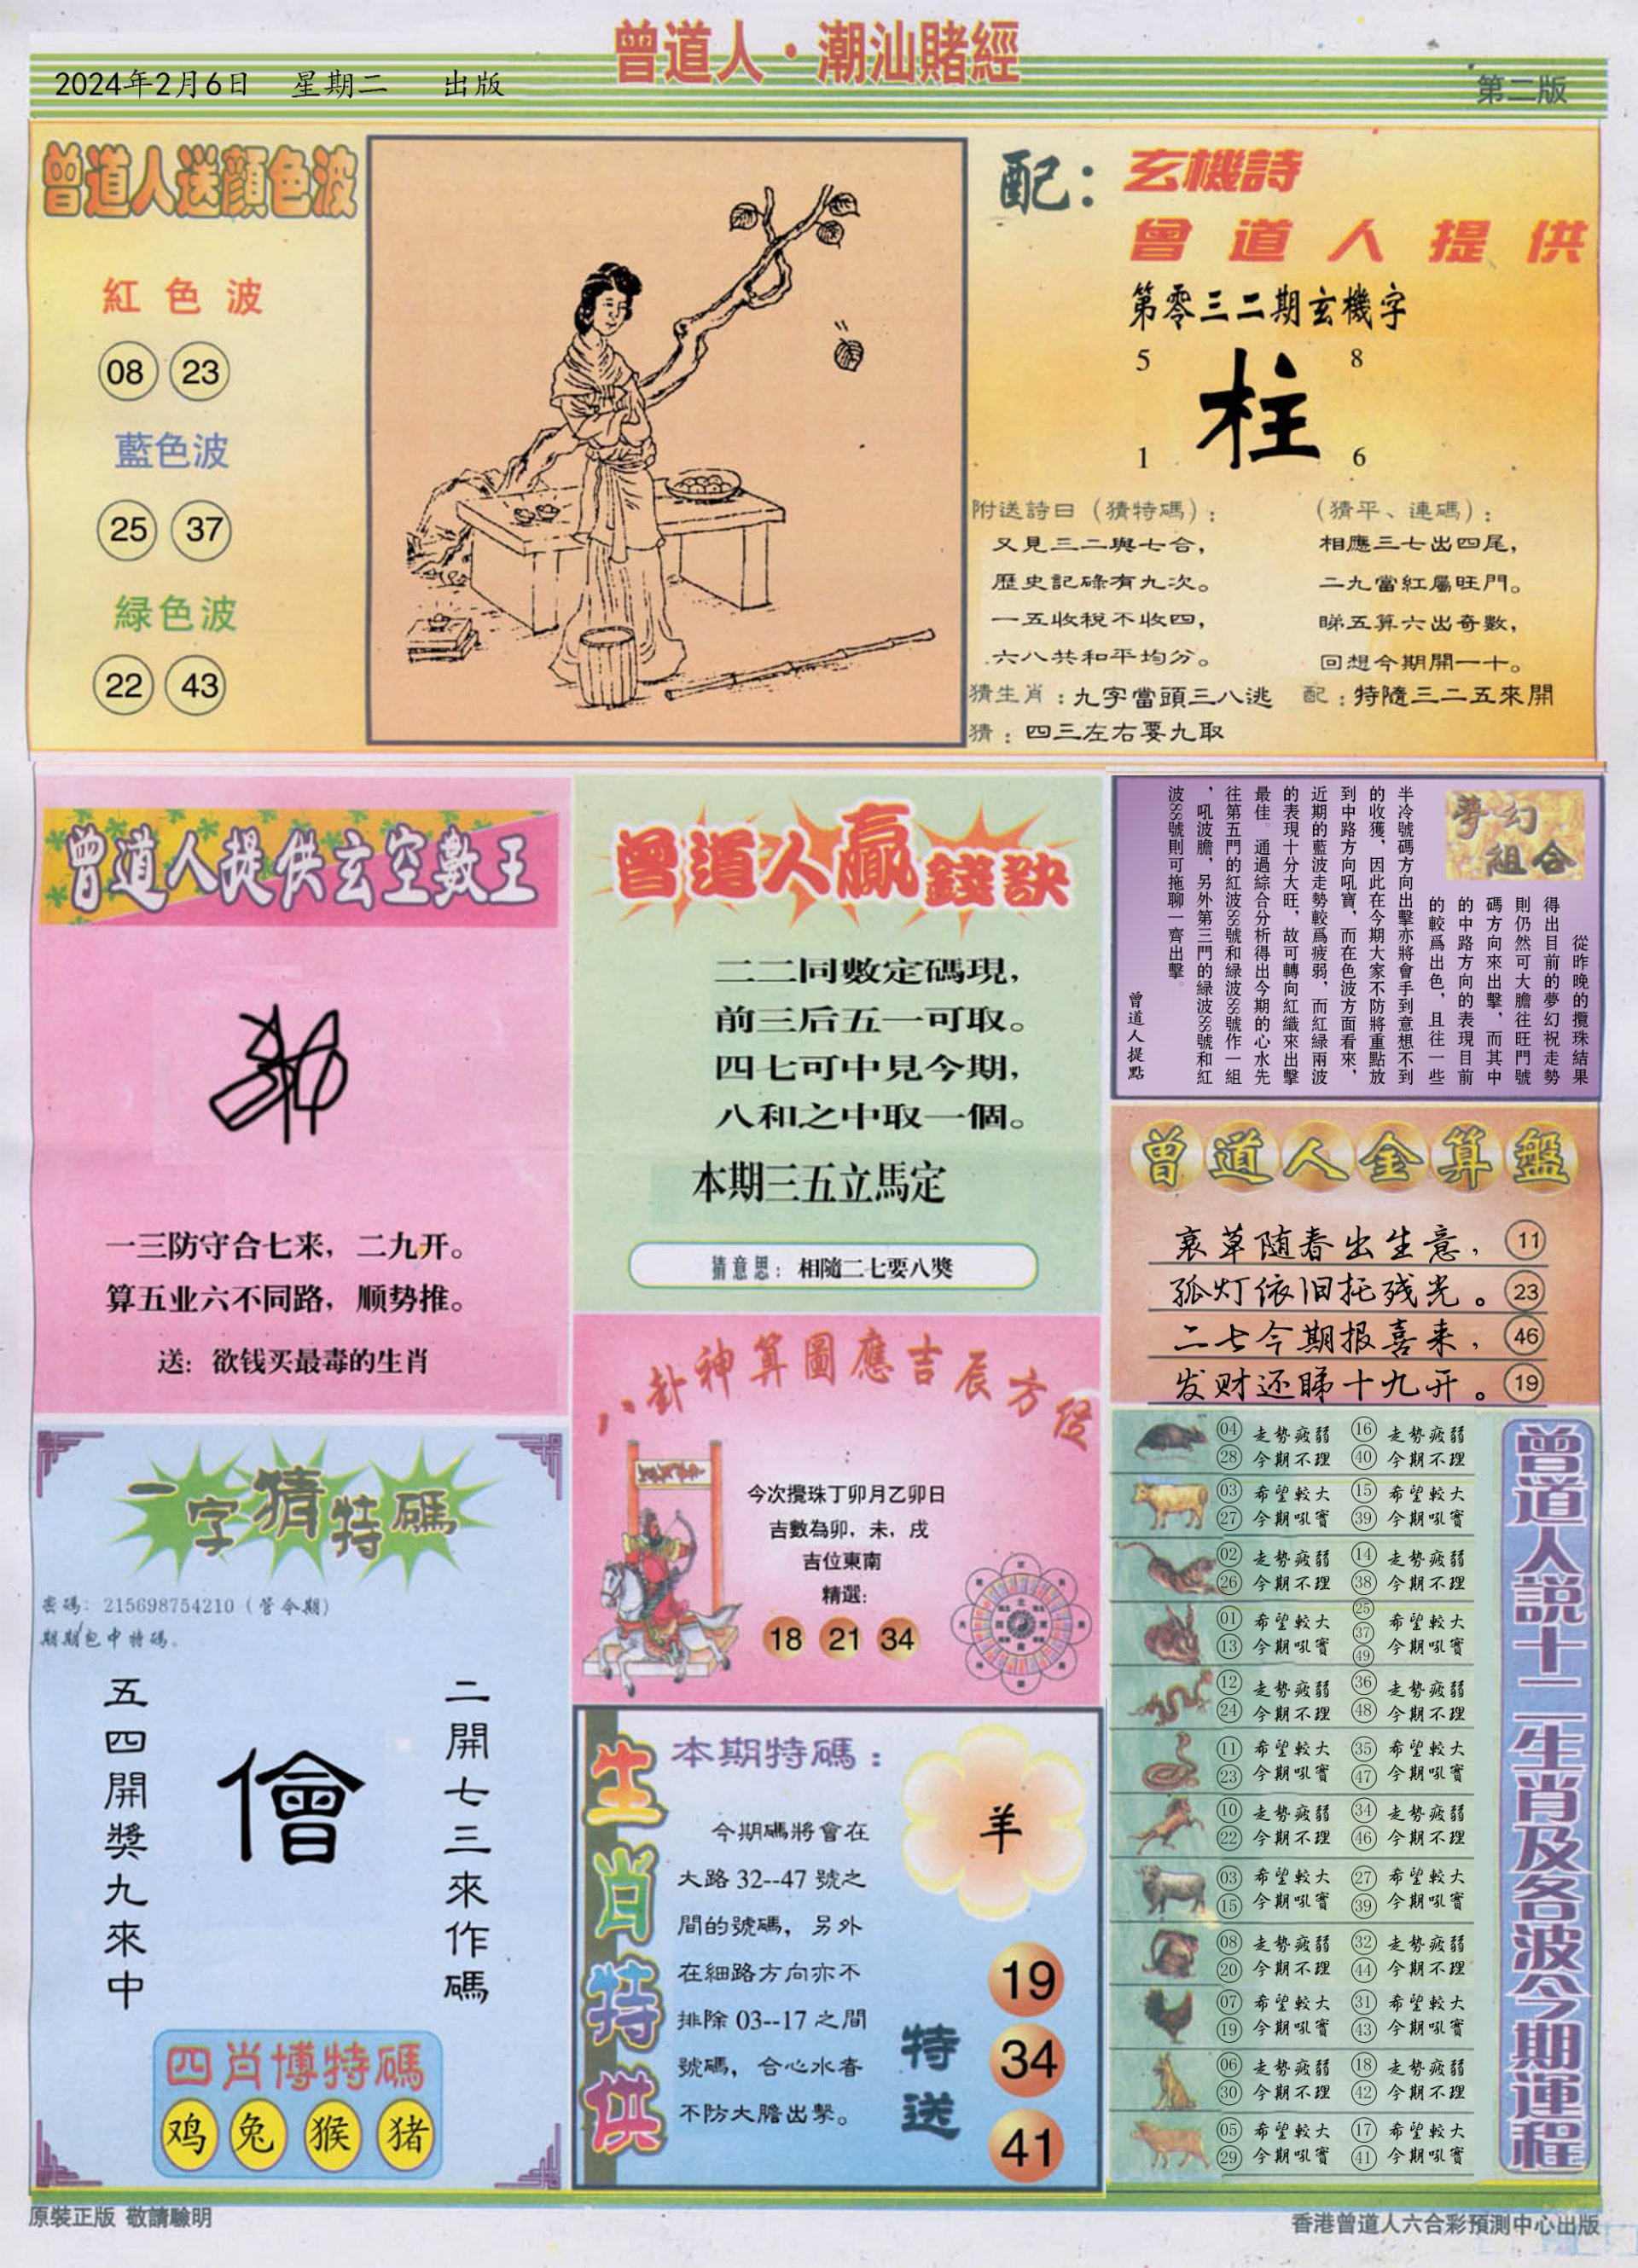 曾道人·潮汕賭經
2024年2月6日 星期二 出版
第二版
曾道人送顔色波
紅色波
08 23
藍色波
25 37
緑色波
22 43
配：玄機詩
曾道人提供
第零三二期玄機字
5 8
柱
1 6
附送詩曰（猜特碼）：
又見三二與七合，
歷史記碌有九次。
一五收税不收四，
六八共和平均分。
（猜平、連碼）：
相應三七出四尾，
二九當紅屬旺門。
睇五算六出奇數，
回想今期開一十。
猜生肖：九字當頭三八逃
配：特隨三二五來開
猜：四三左右要九取
曾道人提供玄空數王
一三防守合七来，二九开。
算五业六不同路，顺势推。
送：欲钱买最毒的生肖
曾道人贏錢訣
二二同數定碼現，
前三后五一可取。
四七可中見今期，
八和之中取一個。
本期三五立馬定
猜意思：相隨二七要八獎
夢幻
組合
從昨晚的攪珠結果
得出目前的夢幻祝走勢
則仍然可大膽往旺門號
碼方向來出擊，而其中
的中路方向的表現目前
的較爲出色，且往一些
半冷號碼方向出擊亦將會手到意想不到
的收獲，因此在今期大家不防將重點放
到中路方向吼寶，而在色波方面看來，
近期的藍波走勢較爲疲弱，而紅緑兩波
的表現十分大旺，故可轉向紅織來出擊
最佳。通過綜合分析得出今期的心水先
往第五門的紅波88號和緑波88號作一組
，吼波膽，另外第三門的緑波88號和紅
波88號則可拖聊一齊出擊。
曾道人提點
曾道人金算盤
哀草随春出生意，11
孤灯依旧托残光。23
二七今期报喜来，46
发财还睇十九开。19
一字猜特碼
密碼：215698754210（管今期）
期期包中特碼。
二開七三來作碼
儈
五四開獎九來中
四肖博特碼
鸡 兔 猴 猪
八卦神算圖應吉辰方位
今次攪珠丁卯月乙卯日
吉數為卯，未，戌
吉位東南
精選：
18 21 34
生肖特供
本期特碼：
今期碼將會在
大路32--47號之
間的號碼，另外
在細路方向亦不
排除03--17之間
號碼，合心水者
不防大膽出擊。
羊
特送
19
34
41
曾道人說十二生肖及各波今期運程
04 走勢疲弱 16 走勢疲弱
28 今期不理 40 今期不理
03 希望較大 15 希望較大
27 今期吼寶 39 今期吼寶
02 走勢疲弱 14 走勢疲弱
26 今期不理 38 今期不理
01 希望較大 25 37 49 希望較大
13 今期吼寶 今期吼寶
12 走勢疲弱 36 走勢疲弱
24 今期不理 48 今期不理
11 希望較大 35 希望較大
23 今期吼寶 47 今期吼寶
10 走勢疲弱 34 走勢疲弱
22 今期不理 46 今期不理
03 希望較大 27 希望較大
15 今期吼寶 39 今期吼寶
08 走勢疲弱 32 走勢疲弱
20 今期不理 44 今期不理
07 希望較大 31 希望較大
19 今期吼寶 43 今期吼寶
06 走勢疲弱 18 走勢疲弱
30 今期不理 42 今期不理
05 希望較大 17 希望較大
29 今期吼寶 41 今期吼寶
原裝正版 敬請驗明
香港曾道人六合彩預測中心出版